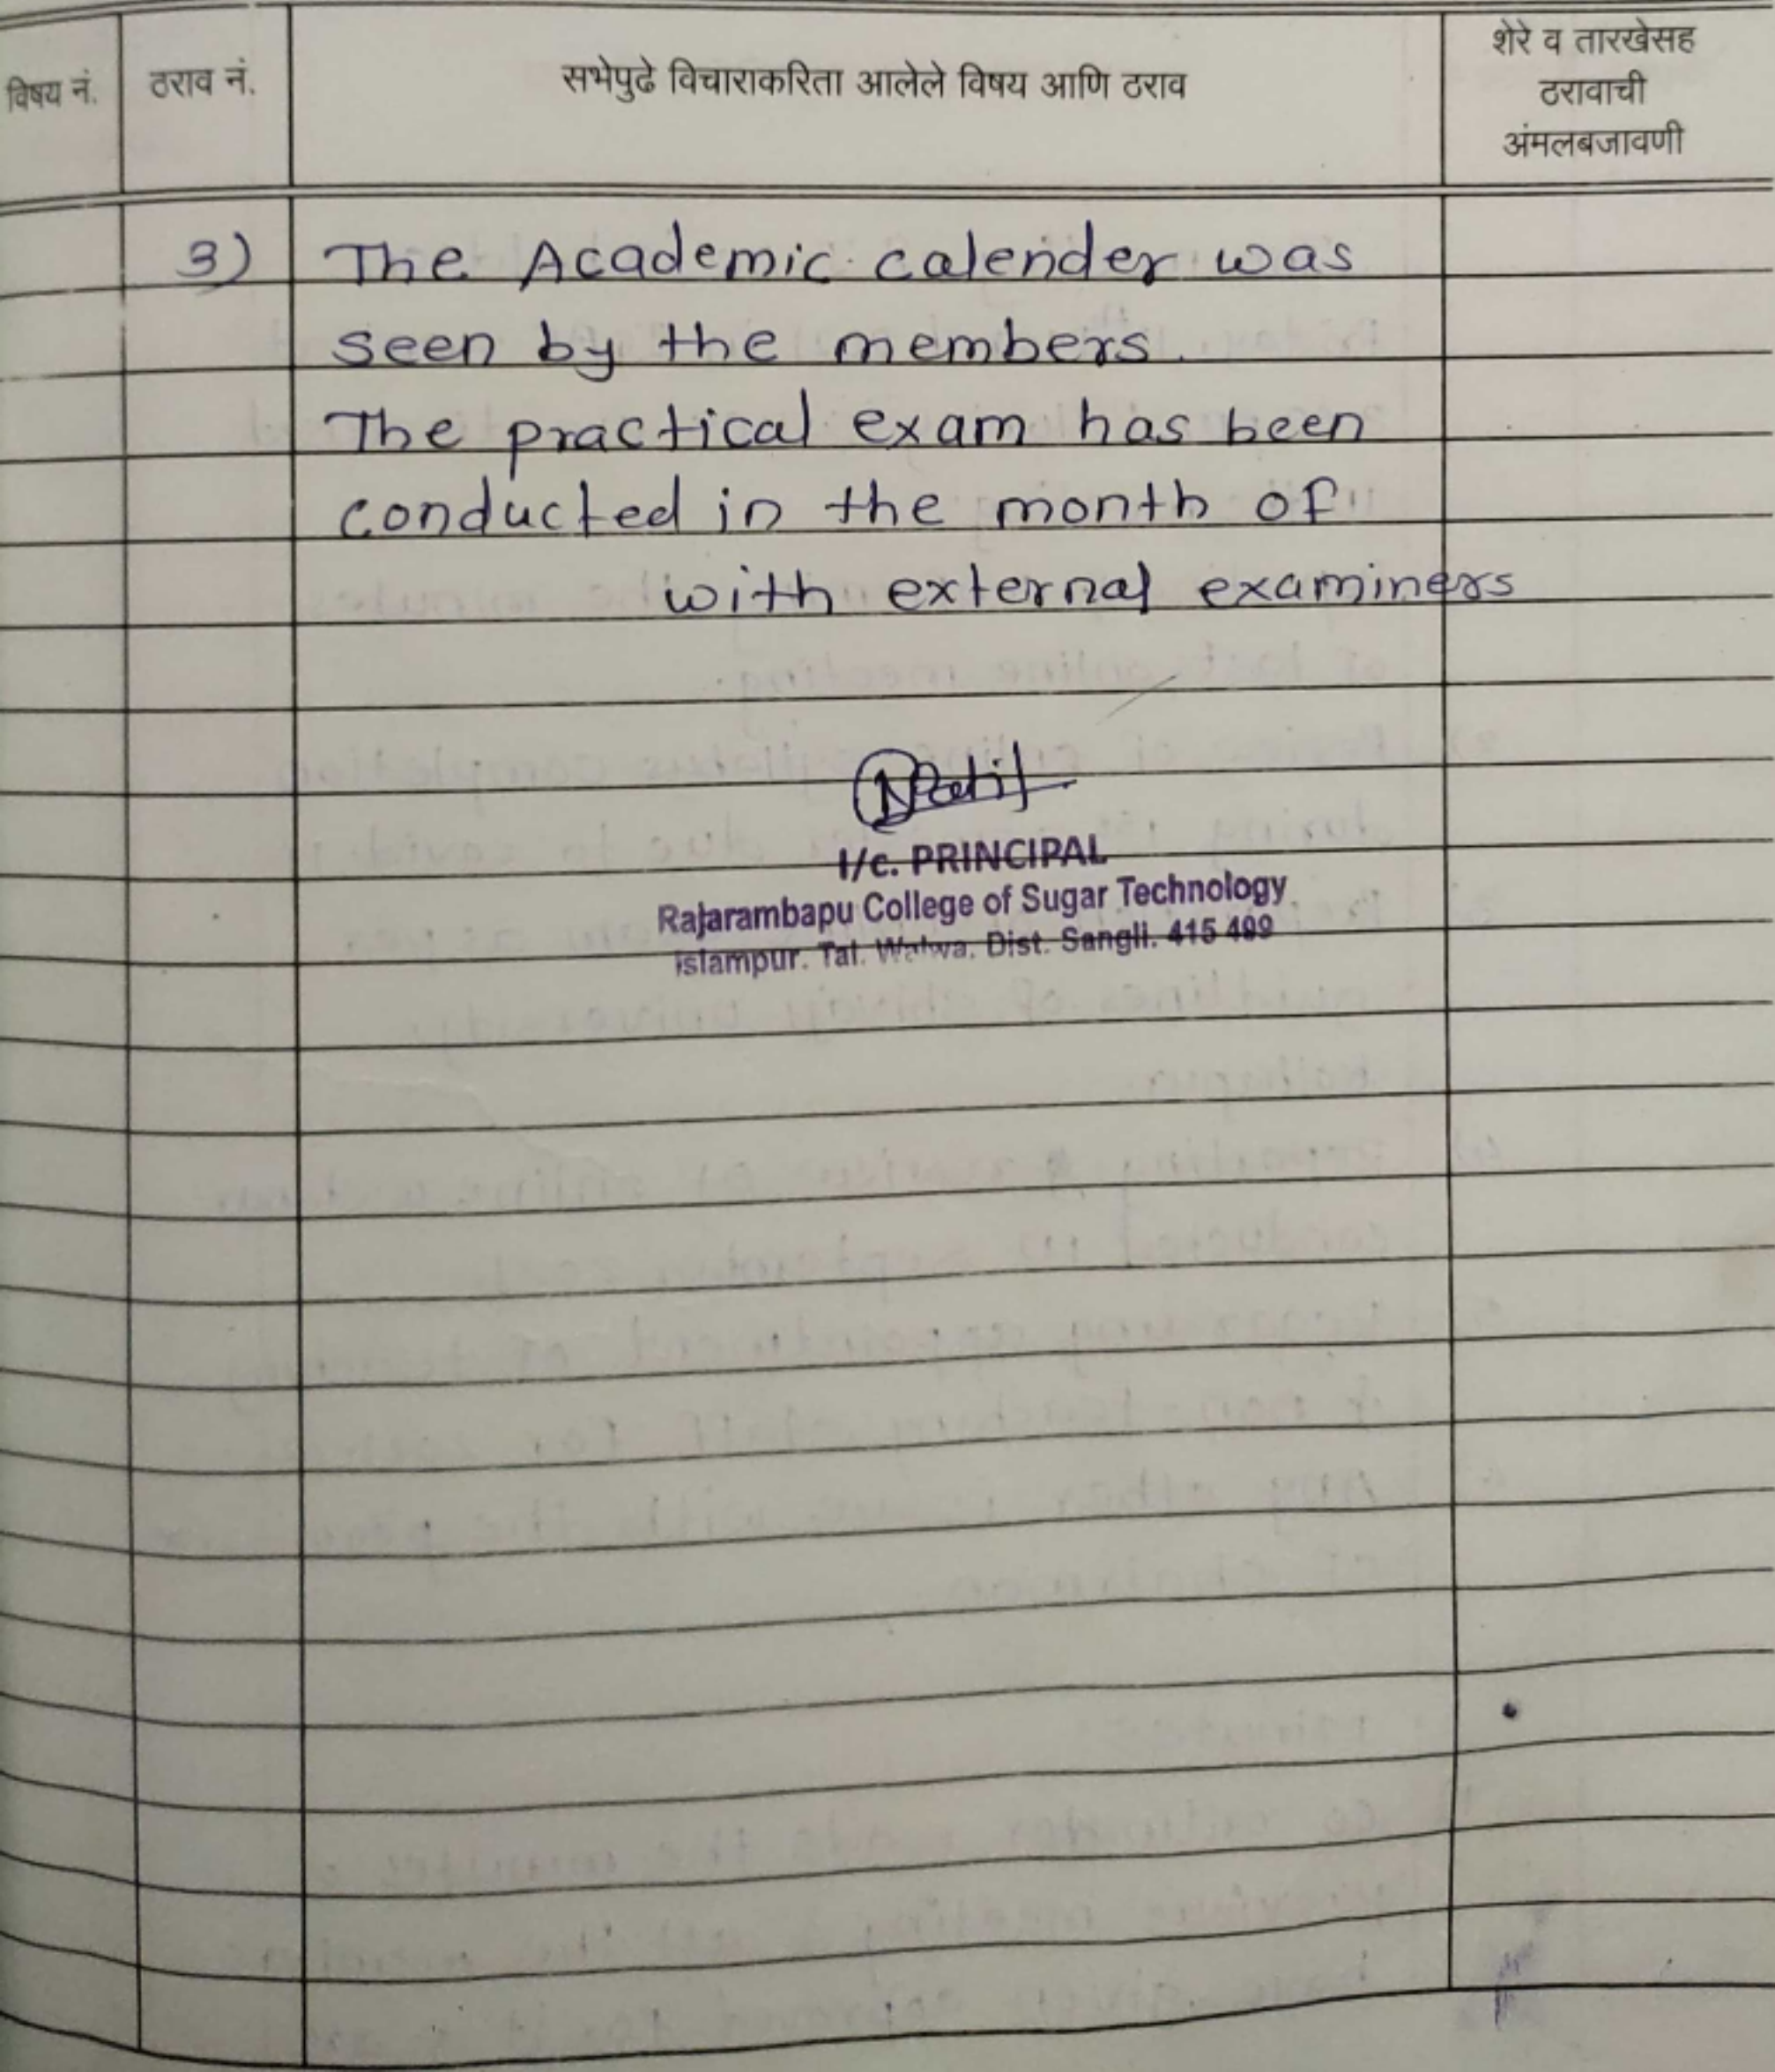 विषय नं.
ठराव नं.
सभेपुढे विचाराकरिता आलेले विषय आणि ठराव
शेरे व तारखेसह
ठरावाची
अंमलबजावणी
3) The Academic calender was
seen by the members.
The practical exam has been
conducted in the month of
with external examiners
Patil
I/c. PRINCIPAL
Rajarambapu College of Sugar Technology
Islampur. Tal. Walwa. Dist. Sangli. 415 409